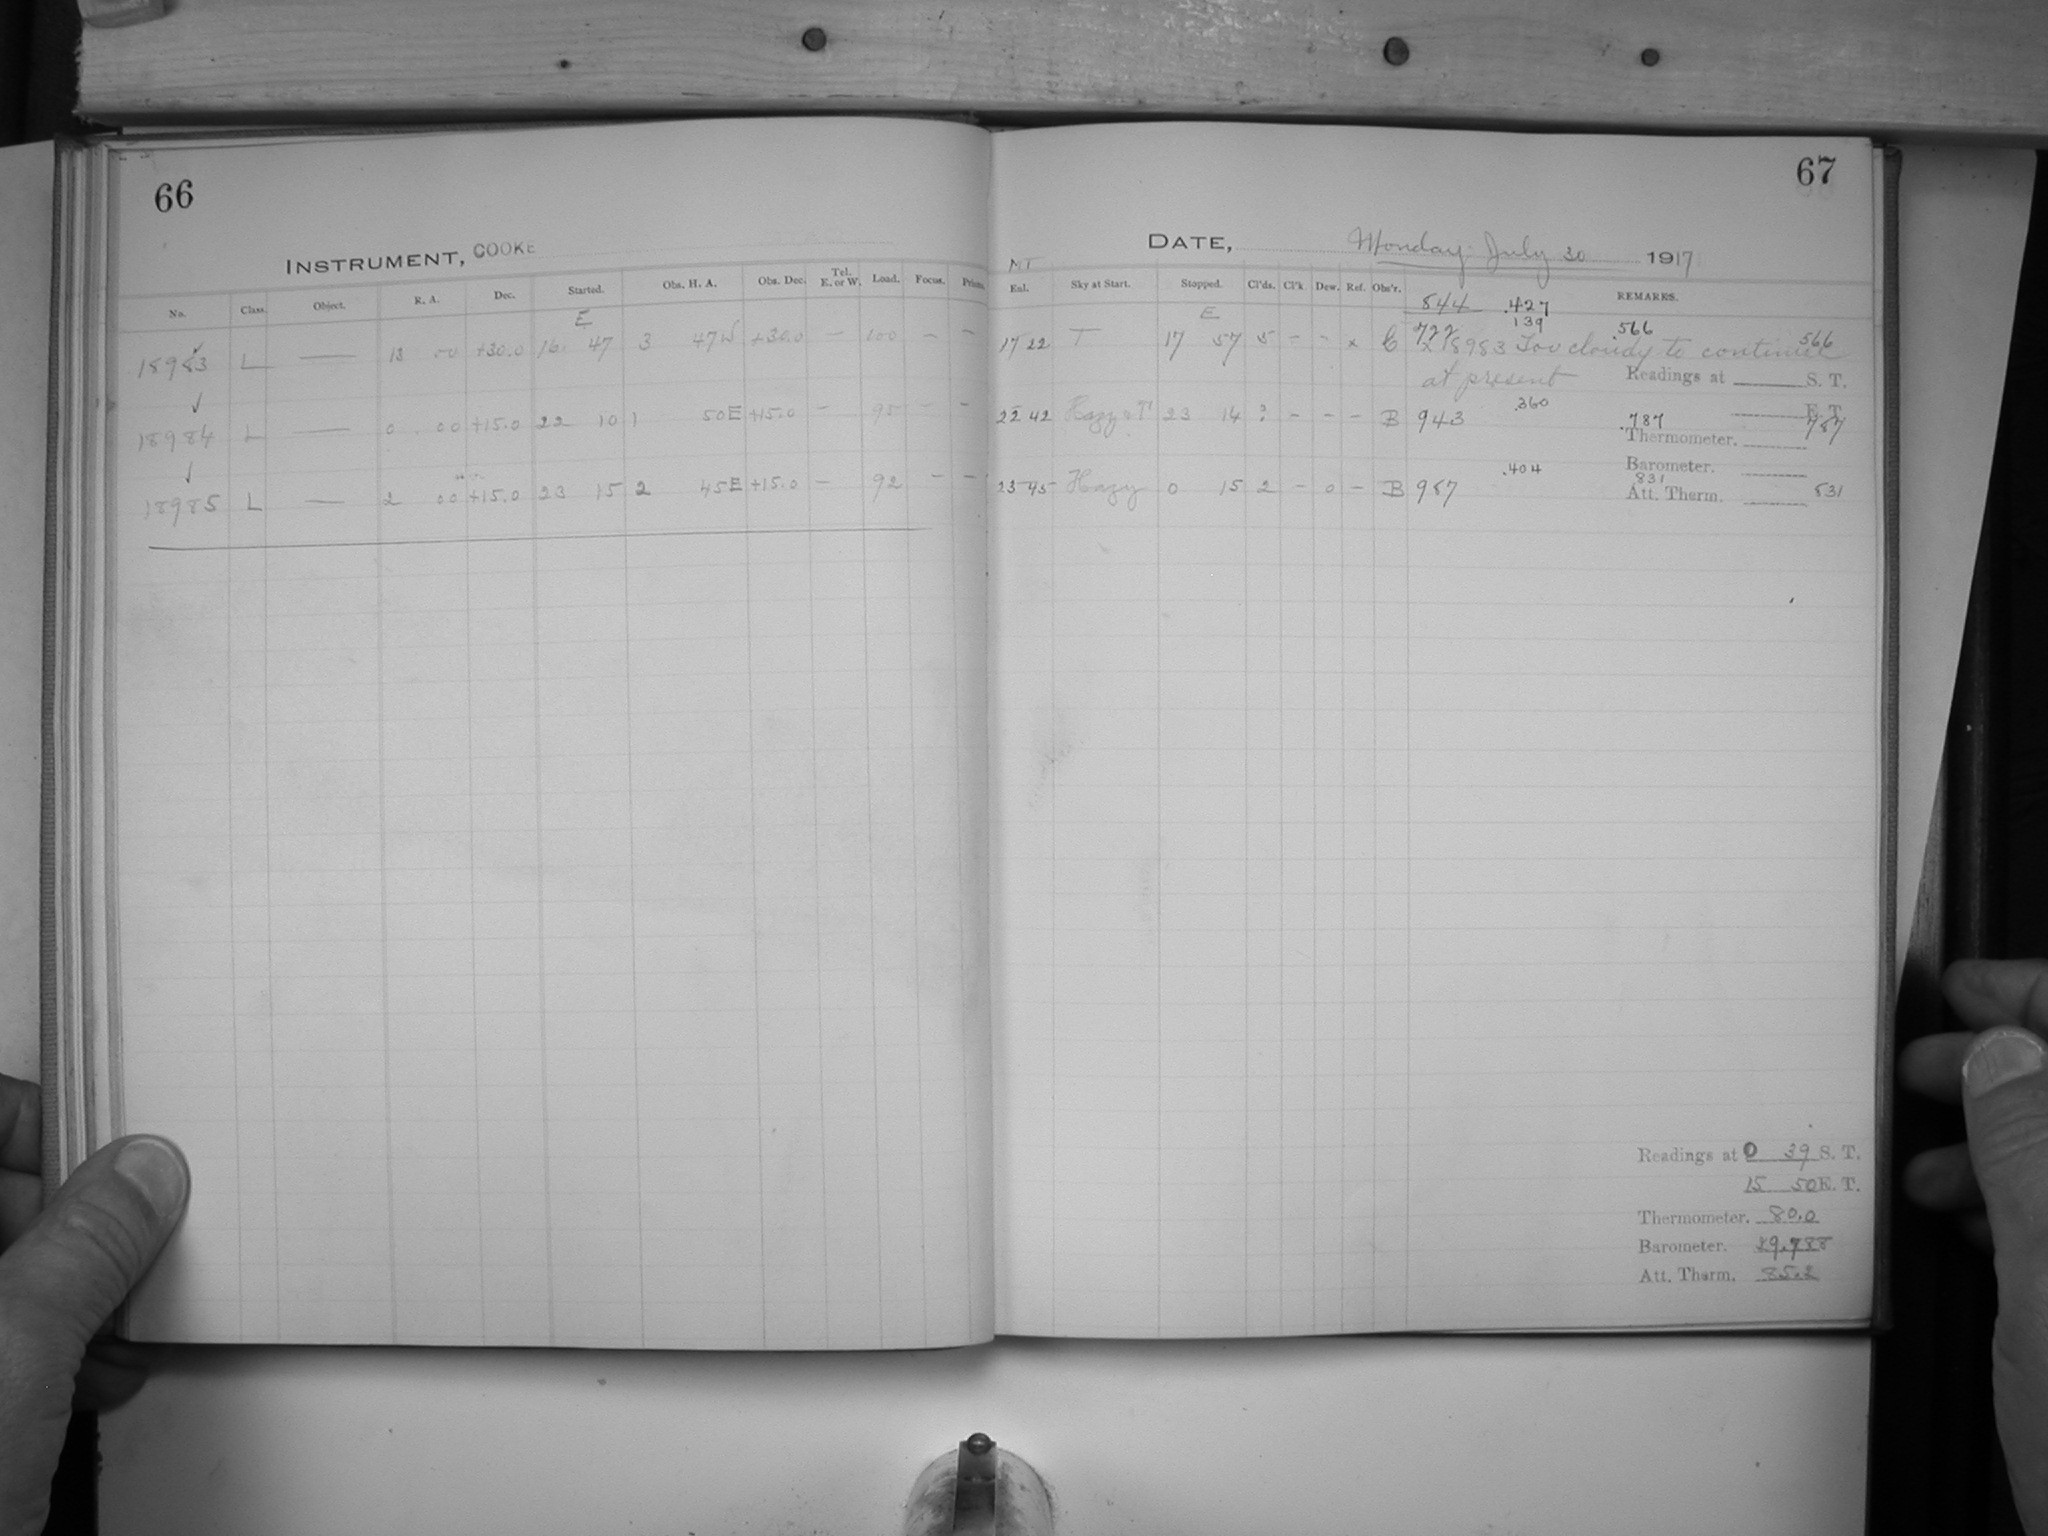 66
INSTRUMENT, COOKE
No. Class. Object. R. A. Dec. Started. Obs. H. A. Obs. Dec. Tel. E. or W. Load. Focus. Prisms.
E
18983 L — 13 00 +30.0 16 47 3 47W +30.0 — 100 — —
18984 L — 0 00 +15.0 22 10 1 50E +15.0 — 95 — —
18985 L — 2 00 +15.0 23 15 2 45E +15.0 — 92 — —
67
DATE, Monday July 30 1917
MT
Enl. Sky at Start. Stopped. Cl'ds. Cl'k Dew. Ref. Obs'r. REMARKS.
844 .427
E 139 566
17 22 T 17 57 5 – – x C 722 566
x 18983 Too cloudy to continue
at present
Readings at S. T.
.360 E. T.
22 42 Hazy T 23 14 ? – – – B 943 .787 787
Thermometer.
.404 Barometer.
831
23 45 Hazy 0 15 2 – 0 – B 987 831
Att. Therm.
Readings at 0 39 S. T.
15 50 E. T.
Thermometer. 80.0
Barometer. 29.788
Att. Therm. 85.2